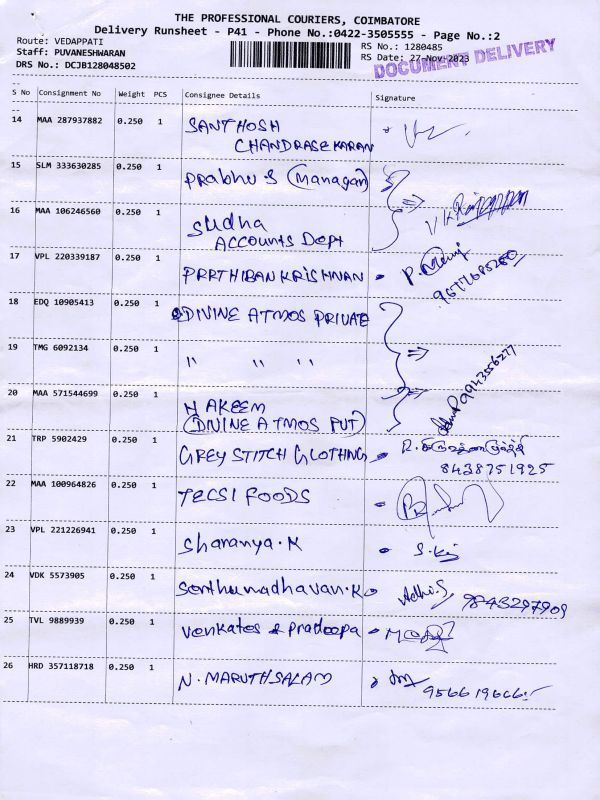 THE PROFESSIONAL COURIERS, COIMBATORE
Delivery Runsheet - P41 - Phone No.:0422-3505555 - Page No.:2
Route: VEDAPPATI
RS No.: 1280485
Staff: PUVANESHWARAN
RS Date: 27-Nov-2023
DRS No.: DCJB128048502
DOCUMENT DELIVERY
S No Consignment No Weight PCS Consignee Details Signature
14 MAA 287937882 0.250 1 SANTHOSH
CHANDRASEKARAN
15 SLM 333630285 0.250 1 Prabhu S (Managar)
16 MAA 106246560 0.250 1 Sudha
ACCOUNTS Dept
17 VPL 220339187 0.250 1 PARTHIBAN KRISHNAN
18 EDQ 10905413 0.250 1 DIVINE ATMOS PRIVATE
19 TMG 6092134 0.250 1 " " "
9943556277
20 MAA 571544699 0.250 1 HAKEEM
(DIVINE ATMOS PVT)
21 TRP 5902429 0.250 1 GREY STITCH CLOTHING
8438751925
22 MAA 100964826 0.250 1 TECSI FOODS
23 VPL 221226941 0.250 1 Sharanya.K
24 VDK 5573905 0.250 1 Senthumadhavan.K 9843297909
25 TVL 9889939 0.250 1 Venkates & Pradeepa
26 HRD 357118718 0.250 1 N.MARUTHSALAM